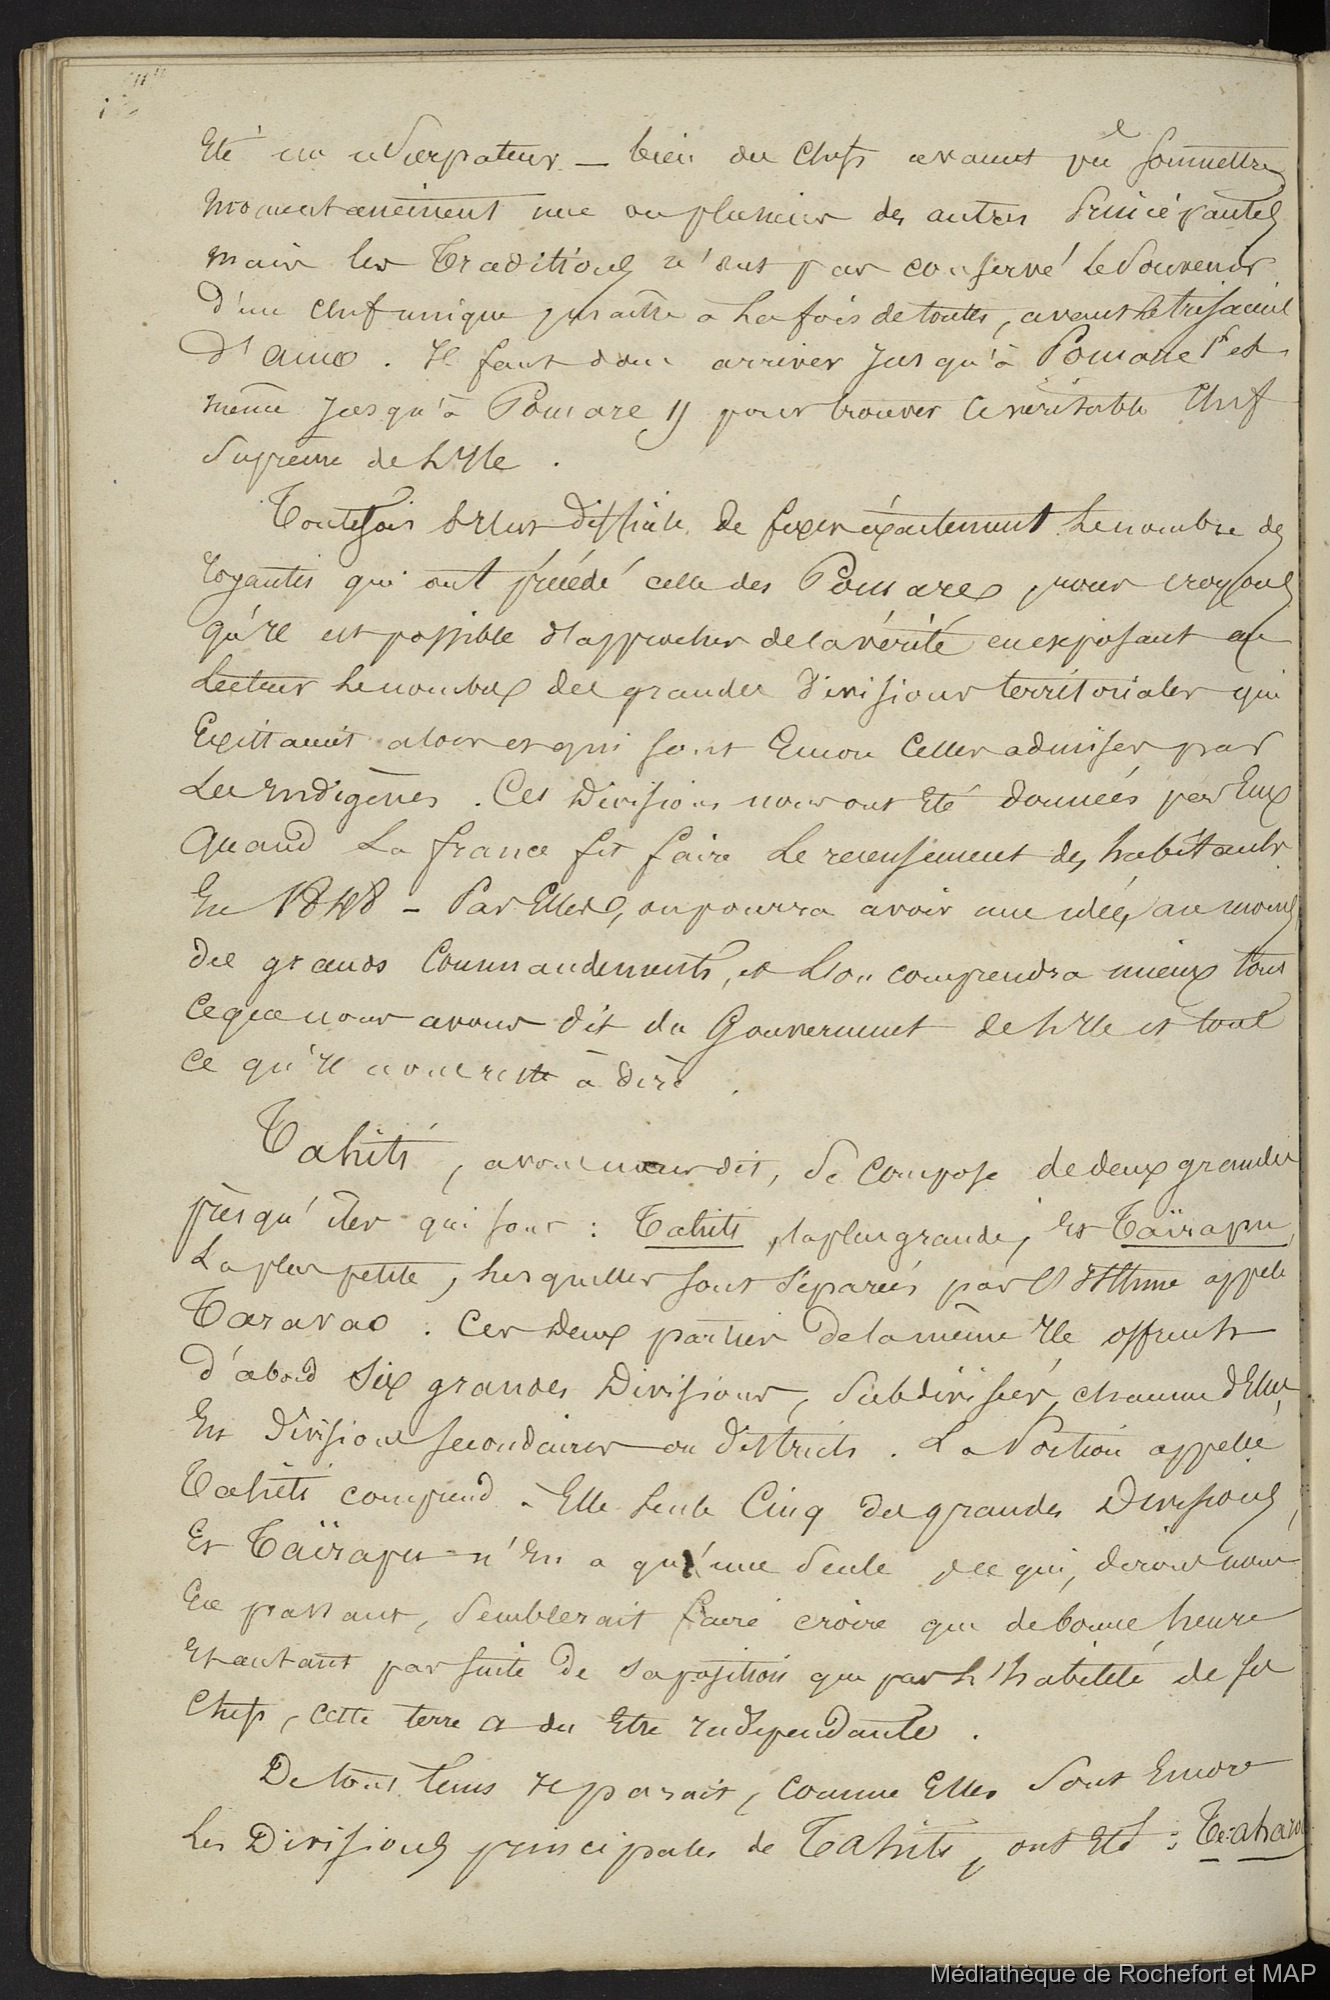 été un usurpateur – bien des chefs avaient pu soumettre
momentanément une ou plusieurs des autres principautés
mais les traditions n'ont pas conservé le souvenir
d'un chef unique à la fois de toutes, avant le trisaieul
d'amo. Il faut donc arriver jusqu'à Pomare 1er et
même jusqu'à Pomare II pour trouver le véritable chef
suprême de l'Ile.
Toutefois difficile de fixer exactement le nombre des
royautés qui ont précédé celle des Pomare, nous croyons
qu'il est possible d'approcher de la vérité en exposant au
lecteur le nombre des grandes divisions territoriales qui
existaient alors et qui sont encore celles admises par
les Indigènes. Ces divisions nous ont été données par Eux
quand la france fit faire le recensement des habitants
En 1848 – Par Elles, on pourra avoir une idée, au moins
des grands commandements, et l'on comprendra mieux tout
ce que nous avons dit du Gouvernement de l'Ile et tout
ce qu'il nous reste à dire.
Tahiti, avons nous dit, se compose de deux grandes
presqu'iles qui sont : Tahiti, la plus grande, et Taïrapu,
La plus petite, lesquelles sont séparées par l'Isthme appelé
Taravao. Ces deux parties de la même Ile offrent
d'abord six grandes Divisions, subdivisées, chacune d'Elles,
En divisions secondaires ou districts. La portion appelée
Tahiti comprend à Elle seule Cinq des grandes Divisions,
Et Taïrapu n'En a qu'une seule, ce qui, dirons nous
En passant, semblerait faire croire que de bonne heure
Et autant par suite de sa position que par l'habileté de ses
chefs, cette terre a du Etre Indépendante.
De tous tems il parait, comme Elles sont Encore
Les Divisions principales de Tahiti, ont été : Te-aharoa
Médiathèque de Rochefort et MAP